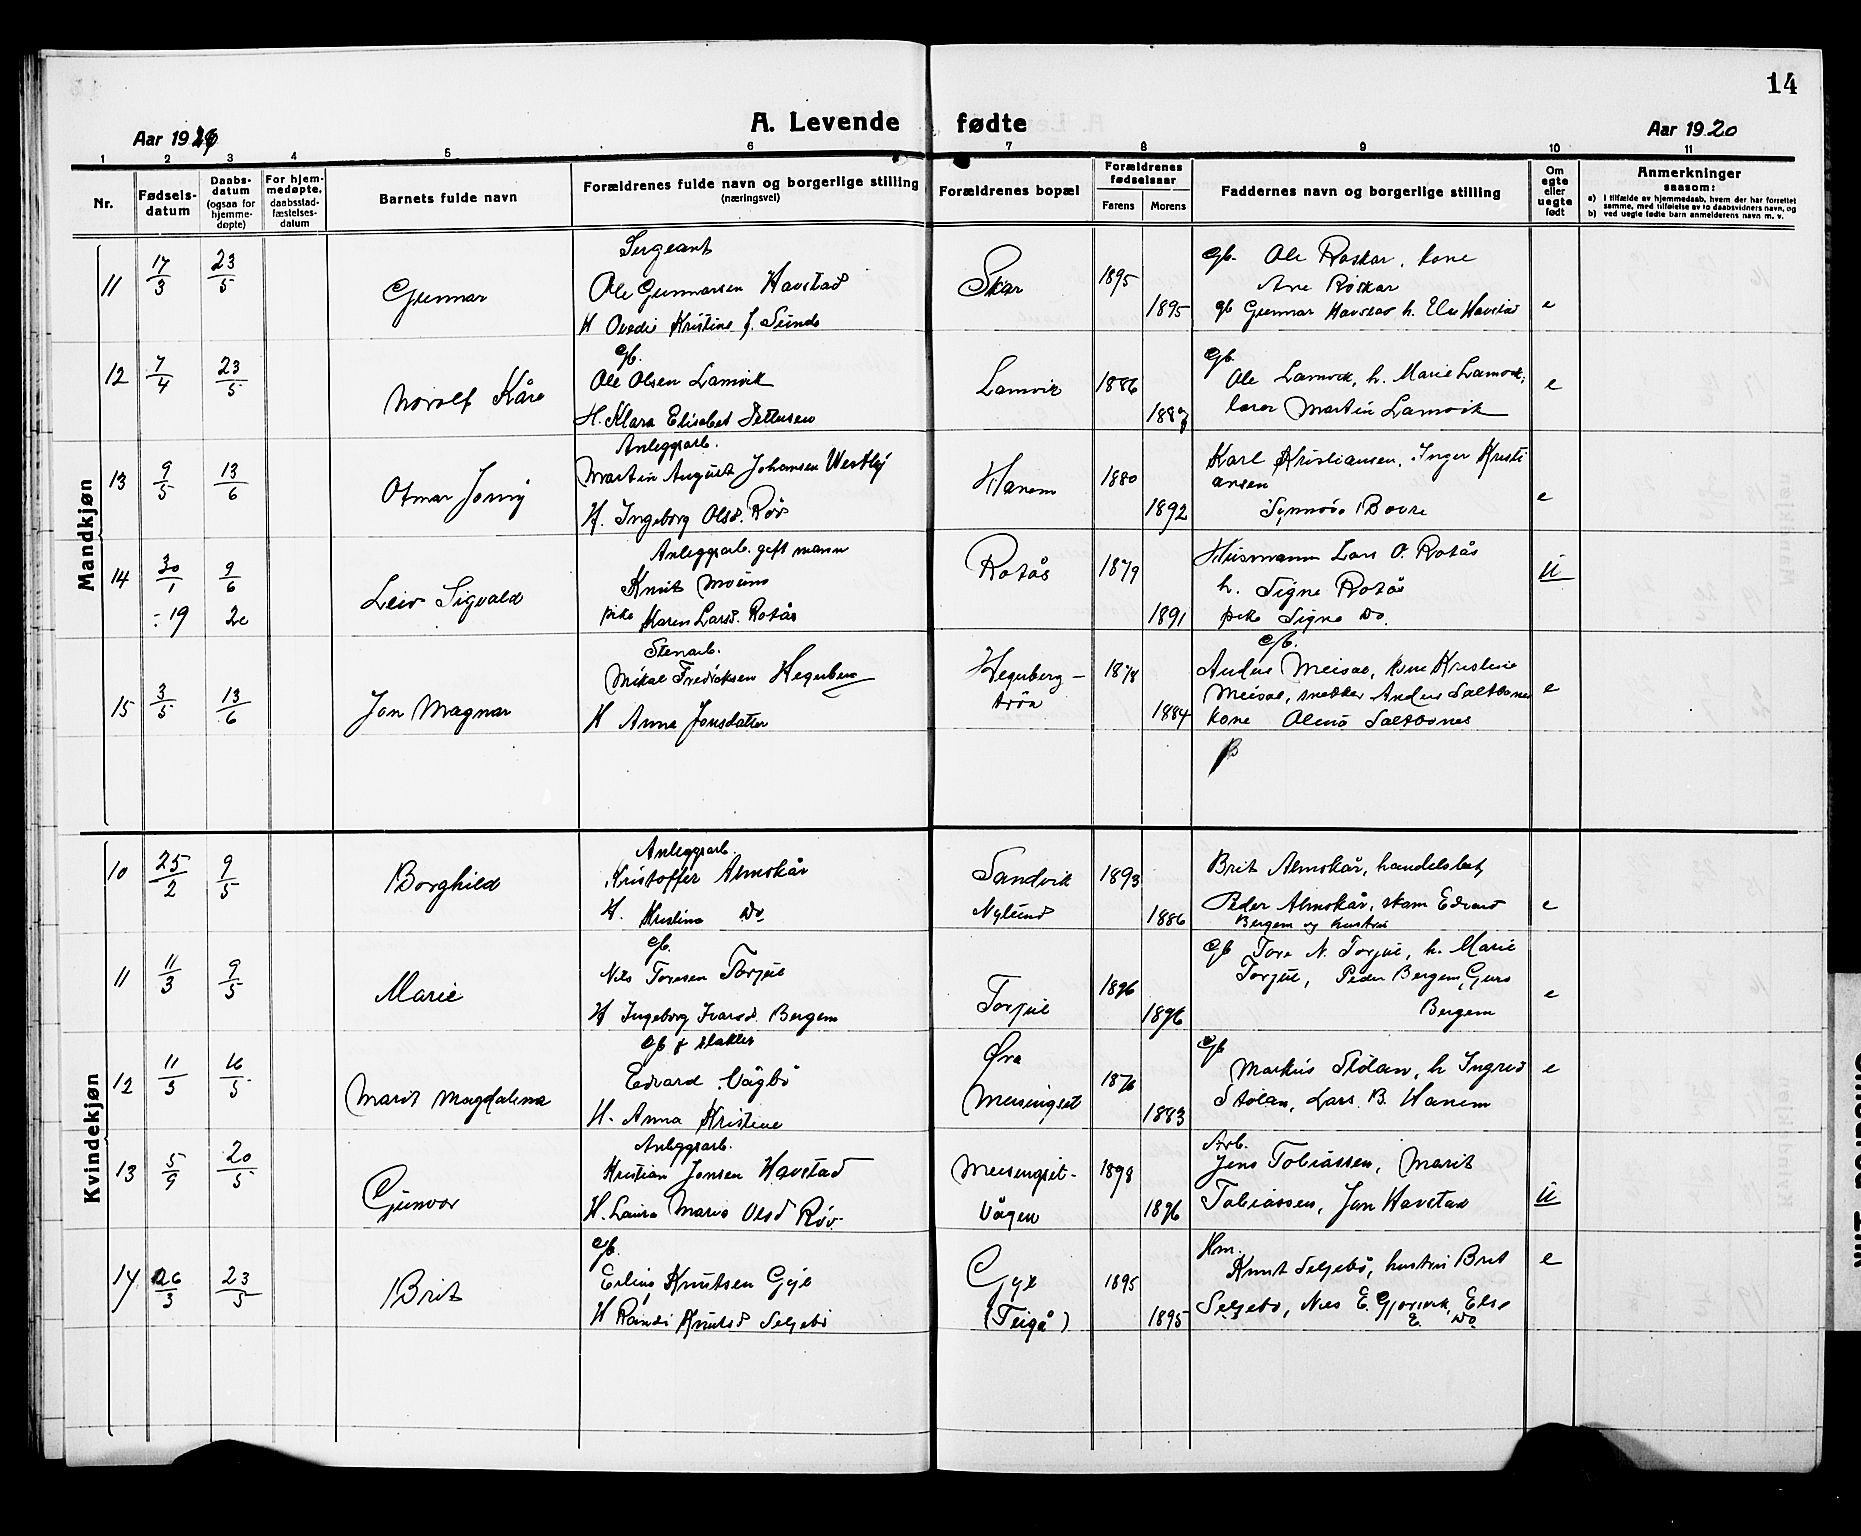 14
A. Levende fødte
Aar 1920
Aar 1920
1 2 3 4 5 6 7 8 9 10 11
Nr.
Fødsels-
datum
Daabs-
datum
(ogsaa for
hjemme-
døpte)
For hjem-
medøpte,
daabsstad-
fæstelses-
datum
Barnets fulde navn
Forældrenes fulde navn og borgerlige stilling
(næringsvei)
Forældrenes bopæl
Forældrenes
fødselsaar
Farens Morens
Faddernes navn og borgerlige stilling
Om
egte
eller
uegte
født
Anmerkninger
saasom:
a) I tilfælde av hjemmedaab, hvem der har forrettet
samme, med tilføielse av to daabsvidners navn, og
b) ved uegte fødte barn anmelderens navn m. v.
Mandkjøn
11 17/3 23/5 Gunnar
Sergeant
Ole Gunnarsen Havstad
H Kristine f. Sunde
Skar 1895 1895
gb. Ole Røskar, kone
Ane Røskar
gb Gunnar Havstad h. Havstad
e
12 7/4 23/5 Norolf Kåre
gb.
Ole Olsen Lamvik
H. Klara Elisabet Pettersen
Lamvik 1886
gb.
Ole Lamvik, h. Marie Lamvik,
lærer Martin Lamvik
e
13 9/5 13/6 Otmar
Anleggsarb.
Martin August Johansen Westby
H. Ingeborg Olsd. Røv
Hanem 1880 1892
Karl Kristiansen, Inger Kristi
ansen
Synnøve Bovre
e
14 30/1 -19 9/6 20 Leiv Sigvald
Anleggsarb. gift mann
Knut
pike Karen Larsd. Rotås
Rotås 1879 1891
Husmann Lars O. Rotås
h. Signe Rotås
pike Signe Do.
u
15 3/5 13/6 Jon Magnar
Stenarb.
Mikal Fredriksen Hegerberg
H Anna Jonsdatter
Hegerberg-
trøa
1878 1884
gb.
Anders Meisal, kone Kristine
Meisal, snekker Anders Saltbones
kone Saltbones
e
Kvindekjøn
10 25/2 9/5 Borghild
Anleggsarb.
Kristoffer Almskår
H. Kristine Do
Sandvik
Nylund
1893 1886
Brit Almskår, handelsbet
Peder Almskår, skom Edvard
Bergem og hustru
e
11 11/3 9/5 Marie
gb.
Nils Toresen Torjul
H Ingeborg Ivarsd. Bergem
Torjul 1896 1896
gb Tore N. Torjul, h. Marie
Torjul, Peder Bergem, Guro
Bergem
e
12 11/3 16/5 Marit Magdalena
gb & slakter
Edvard Vågbø
H. Anna Kristine
Øra
Meisingset
1876 1883
gb
Markus Stølan, h Ingrid
Stølan, Lars B. Hanem
e
13 5/9 20/5 Gunvor
Anleggsarb.
Kristian Jonsen Havstad
H. Laura Marie Olsd Røv
Meisingset-
Vågen
1898 1896
Arb.
Jens Tobiassen, Marit
Tobiassen, Jon Havstad
u
14 26/3 23/5 Brit
gb.
Erling Knutsen Gyl
H Randi Knutsd Seljebø
Gyl
(Teigå)
1895 1895
Hm.
Knut Seljebø, hustru Brit
Seljebø, Nils E. Gjørsvik, Else
E. Do
e